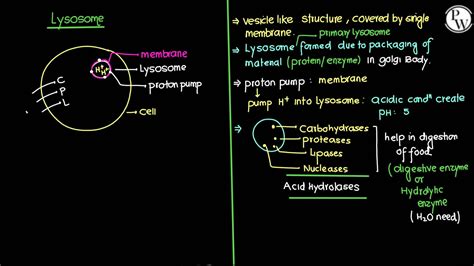 Lysosome
membrane
Lysosome
proton pump
H+
H+ H+
C
P
L
cell
PW
⇒ vesicle like structure, covered by single
membrane.
primary lysosome
⇒ Lysosome formed due to packaging of
material (protein/enzyme) in golgi Body.
⇒ proton pump : membrane
pump H+ into Lysosome : acidic condn create
pH : 5
⇒ Carbohydrases
proteases
Lipases
Nucleases
help in digestion
of food.
(digestive enzyme
or
Hydrolytic
enzyme
(H2O need)
Acid hydrolases